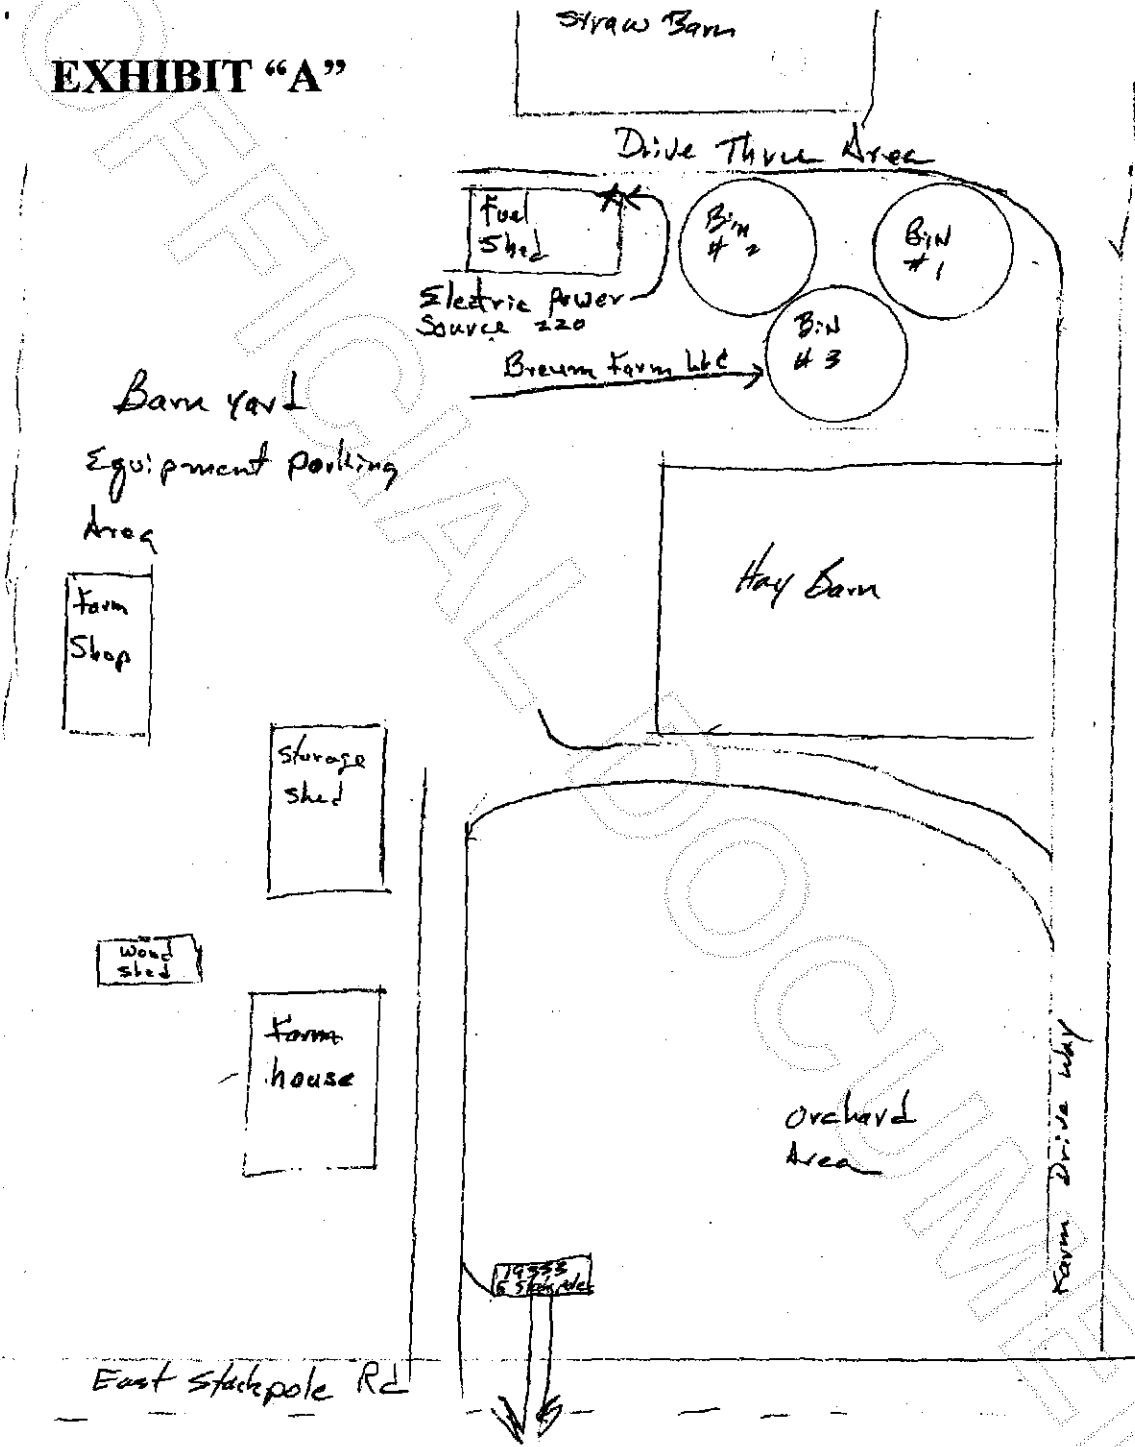 Straw Barn
EXHIBIT “A”
Drive Three Area
Fuel
Shed
Bin
# 2
BiN
# 1
Electric Power
Source 220
BiN
# 3
Farm
Barn Yard
Equipment Parking
Area
Hay Barn
Farm
Shop
Storage
Shed
Wood
Shed
Farm
house
Orchard
Area
Farm Drive Way
19333
East Stackpole Rd
OFFICIAL DOCUME